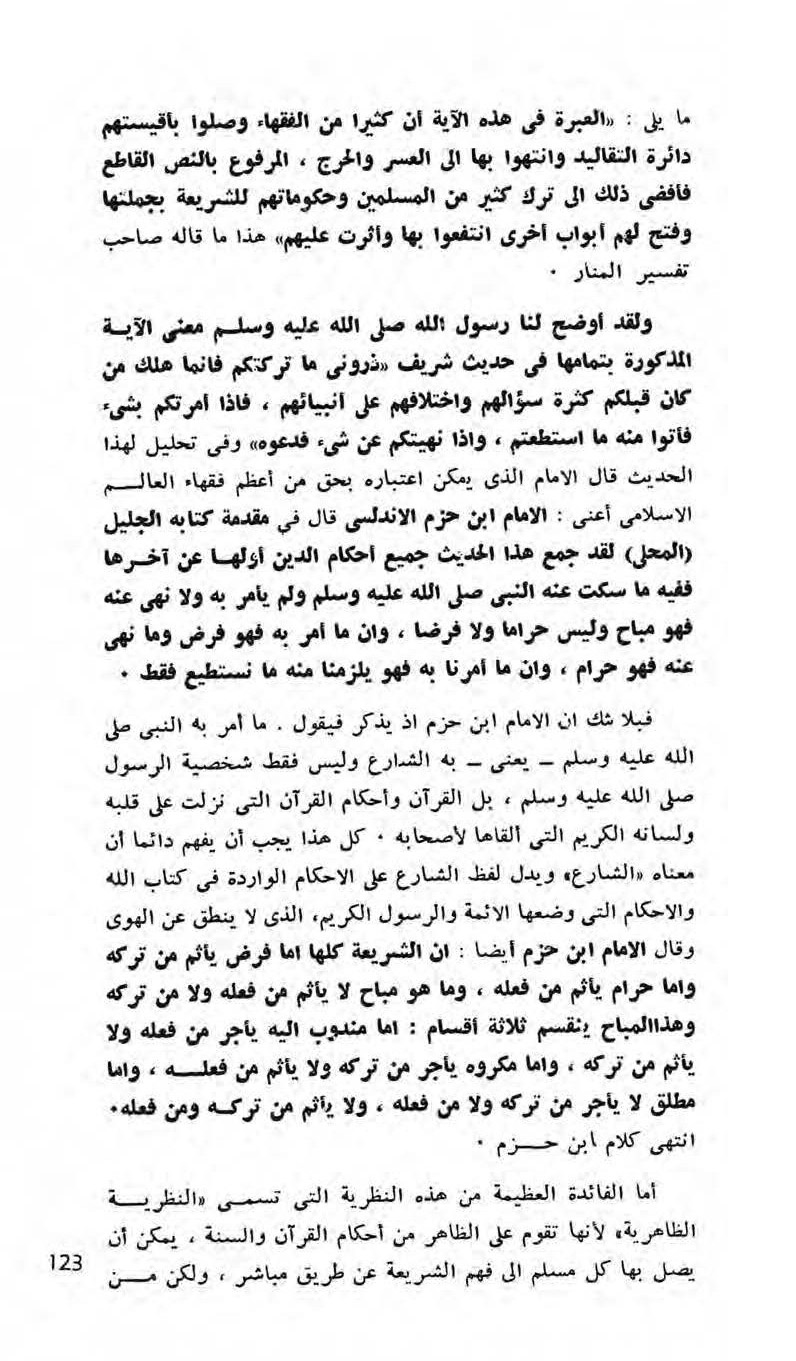 ما يلى : «العبرة فى هذه الآية أن كثيرا من الفقهاء وصلوا بأقيستهم
دائرة التقاليد وانتهوا بها الى العسر والحرج ، المرفوع بالنص القاطع
فأفضى ذلك الى ترك كثير من المسلمين وحكوماتهم للشريعة بجملتها
وفتح لهم أبواب أخرى انتفعوا بها وأثرت عليهم» هذا ما قاله صاحب
تفسير المنار .
ولقد أوضح لنا رسول الله صلى الله عليه وسلم معنى الآية
المذكورة بتمامها فى حديث شريف «ذرونى ما تركتكم فانما هلك من
كان قبلكم كثرة سؤالهم واختلافهم على أنبيائهم ، فاذا أمرتكم بشىء
فأتوا منه ما استطعتم ، واذا نهيتكم عن شىء فدعوه» وفى تحليل لهذا
الحديث قال الامام الذى يمكن اعتباره بحق من أعظم فقهاء العالم
الاسلامى أعنى : الامام ابن حزم الاندلسى قال في مقدمة كتابه الجليل
(المحلى) لقد جمع هذا الحديث جميع أحكام الدين أولها عن آخرها
ففيه ما سكت عنه النبى صلى الله عليه وسلم ولم يأمر به ولا نهى عنه
فهو مباح وليس حراما ولا فرضا ، وان ما أمر به فهو فرض وما نهى
عنه فهو حرام ، وان ما أمرنا به فهو يلزمنا منه ما نستطيع فقط .
فبلا شك ان الامام ابن حزم اذ يذكر فيقول . ما أمر به النبى صلى
الله عليه وسلم – يعنى – به الشارع وليس فقط شخصية الرسول
صلى الله عليه وسلم ، بل القرآن وأحكام القرآن التى نزلت على قلبه
ولسانه الكريم التى ألقاها لأصحابه . كل هذا يجب أن يفهم دائما أن
معناه «الشارع» ويدل لفظ الشارع على الاحكام الواردة فى كتاب الله
والاحكام التى وضعها الائمة والرسول الكريم، الذى لا ينطق عن الهوى
وقال الامام ابن حزم أيضا : ان الشريعة كلها اما فرض يأثم من تركه
واما حرام يأثم من فعله ، وما هو مباح لا يأثم من فعله ولا من تركه
وهذاالمباح ينقسم ثلاثة أقسام : اما مندوب اليه يأجر من فعله ولا
يأثم من تركه ، واما مكروه يأجر من تركه ولا يأثم من فعله ، واما
مطلق لا يأجر من تركه ولا من فعله ، ولا يأثم من تركه ومن فعله.
انتهى كلام ابن حزم .
أما الفائدة العظيمة من هذه النظرية التى تسمى «النظرية
الظاهرية» لأنها تقوم على الظاهر من أحكام القرآن والسنة ، يمكن أن
يصل بها كل مسلم الى فهم الشريعة عن طريق مباشر ، ولكن من
123